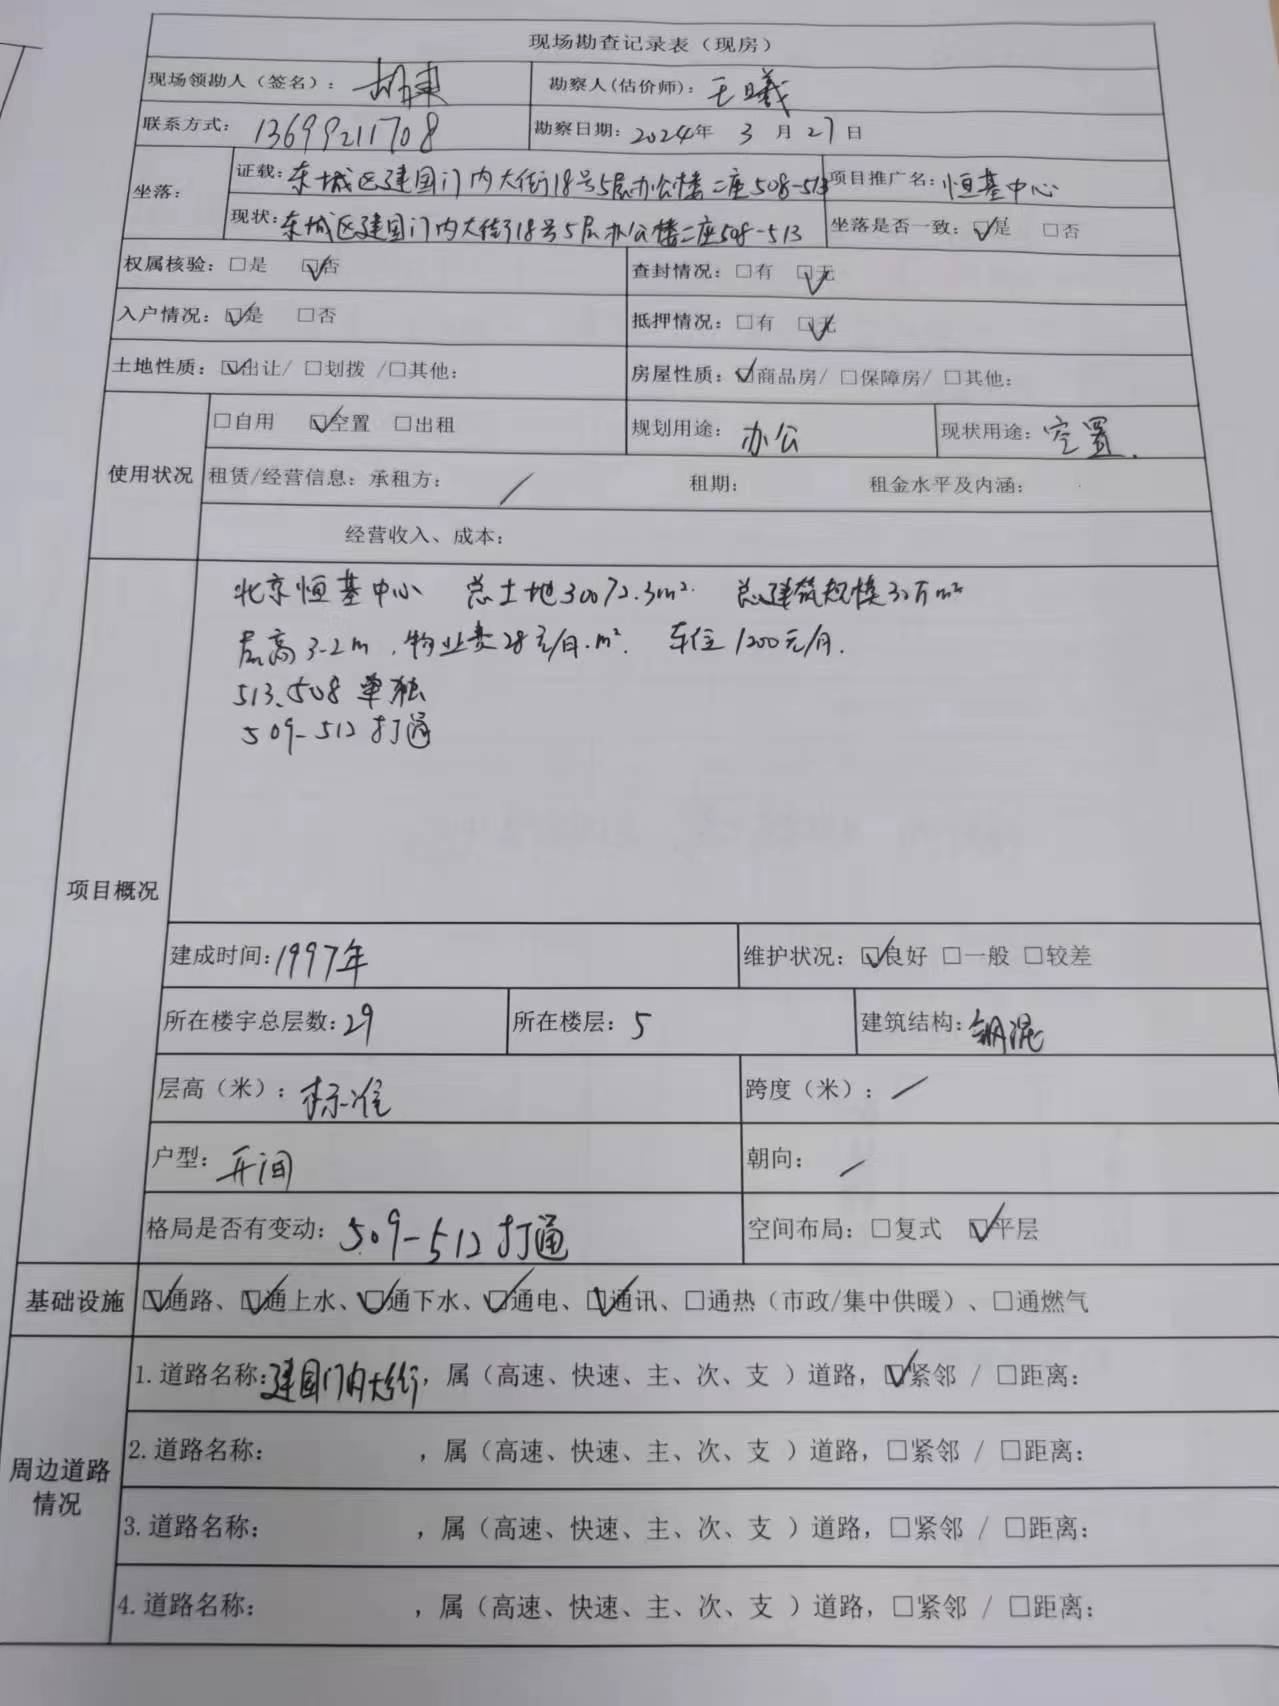 现场勘查记录表（现房）
现场领勘人（签名）： 勘察人(估价师)：王曦
联系方式：13699211708 勘察日期：2024年 3 月 27 日
坐落： 证载：东城区建国门内大街18号5层办公楼二座508-513 项目推广名：恒基中心
现状：东城区建国门内大街18号5层办公楼二座508-513 坐落是否一致：☑是 □否
权属核验：□是 ☑否 查封情况：□有 ☑无
入户情况：☑是 □否 抵押情况：□有 ☑无
土地性质：☑出让/ □划拨 /□其他： 房屋性质：☑商品房/ □保障房/ □其他：
使用状况 □自用 ☑空置 □出租 规划用途：办公 现状用途：空置.
租赁/经营信息：承租方： / 租期： 租金水平及内涵：
经营收入、成本：
项目概况
北京恒基中心 总土地30072.3m². 总建筑规模30万m²
层高3.2m，物业费28元/月.m². 车位1200元/月.
513、508 单独
509-512 打通
建成时间：1997年 维护状况：☑良好 □一般 □较差
所在楼宇总层数：29 所在楼层：5 建筑结构：钢混
层高（米）：标准 跨度（米）：/
户型：开间 朝向：/
格局是否有变动：509-512 打通 空间布局：□复式 ☑平层
基础设施 ☑通路、☑通上水、☑通下水、☑通电、☑通讯、□通热（市政/集中供暖）、□通燃气
周边道路情况
1.道路名称：建国门内大街，属（高速、快速、主、次、支 ）道路，☑紧邻 / □距离：
2.道路名称： ，属（高速、快速、主、次、支 ）道路，□紧邻 / □距离：
3.道路名称： ，属（高速、快速、主、次、支 ）道路，□紧邻 / □距离：
4.道路名称： ，属（高速、快速、主、次、支 ）道路，□紧邻 / □距离：